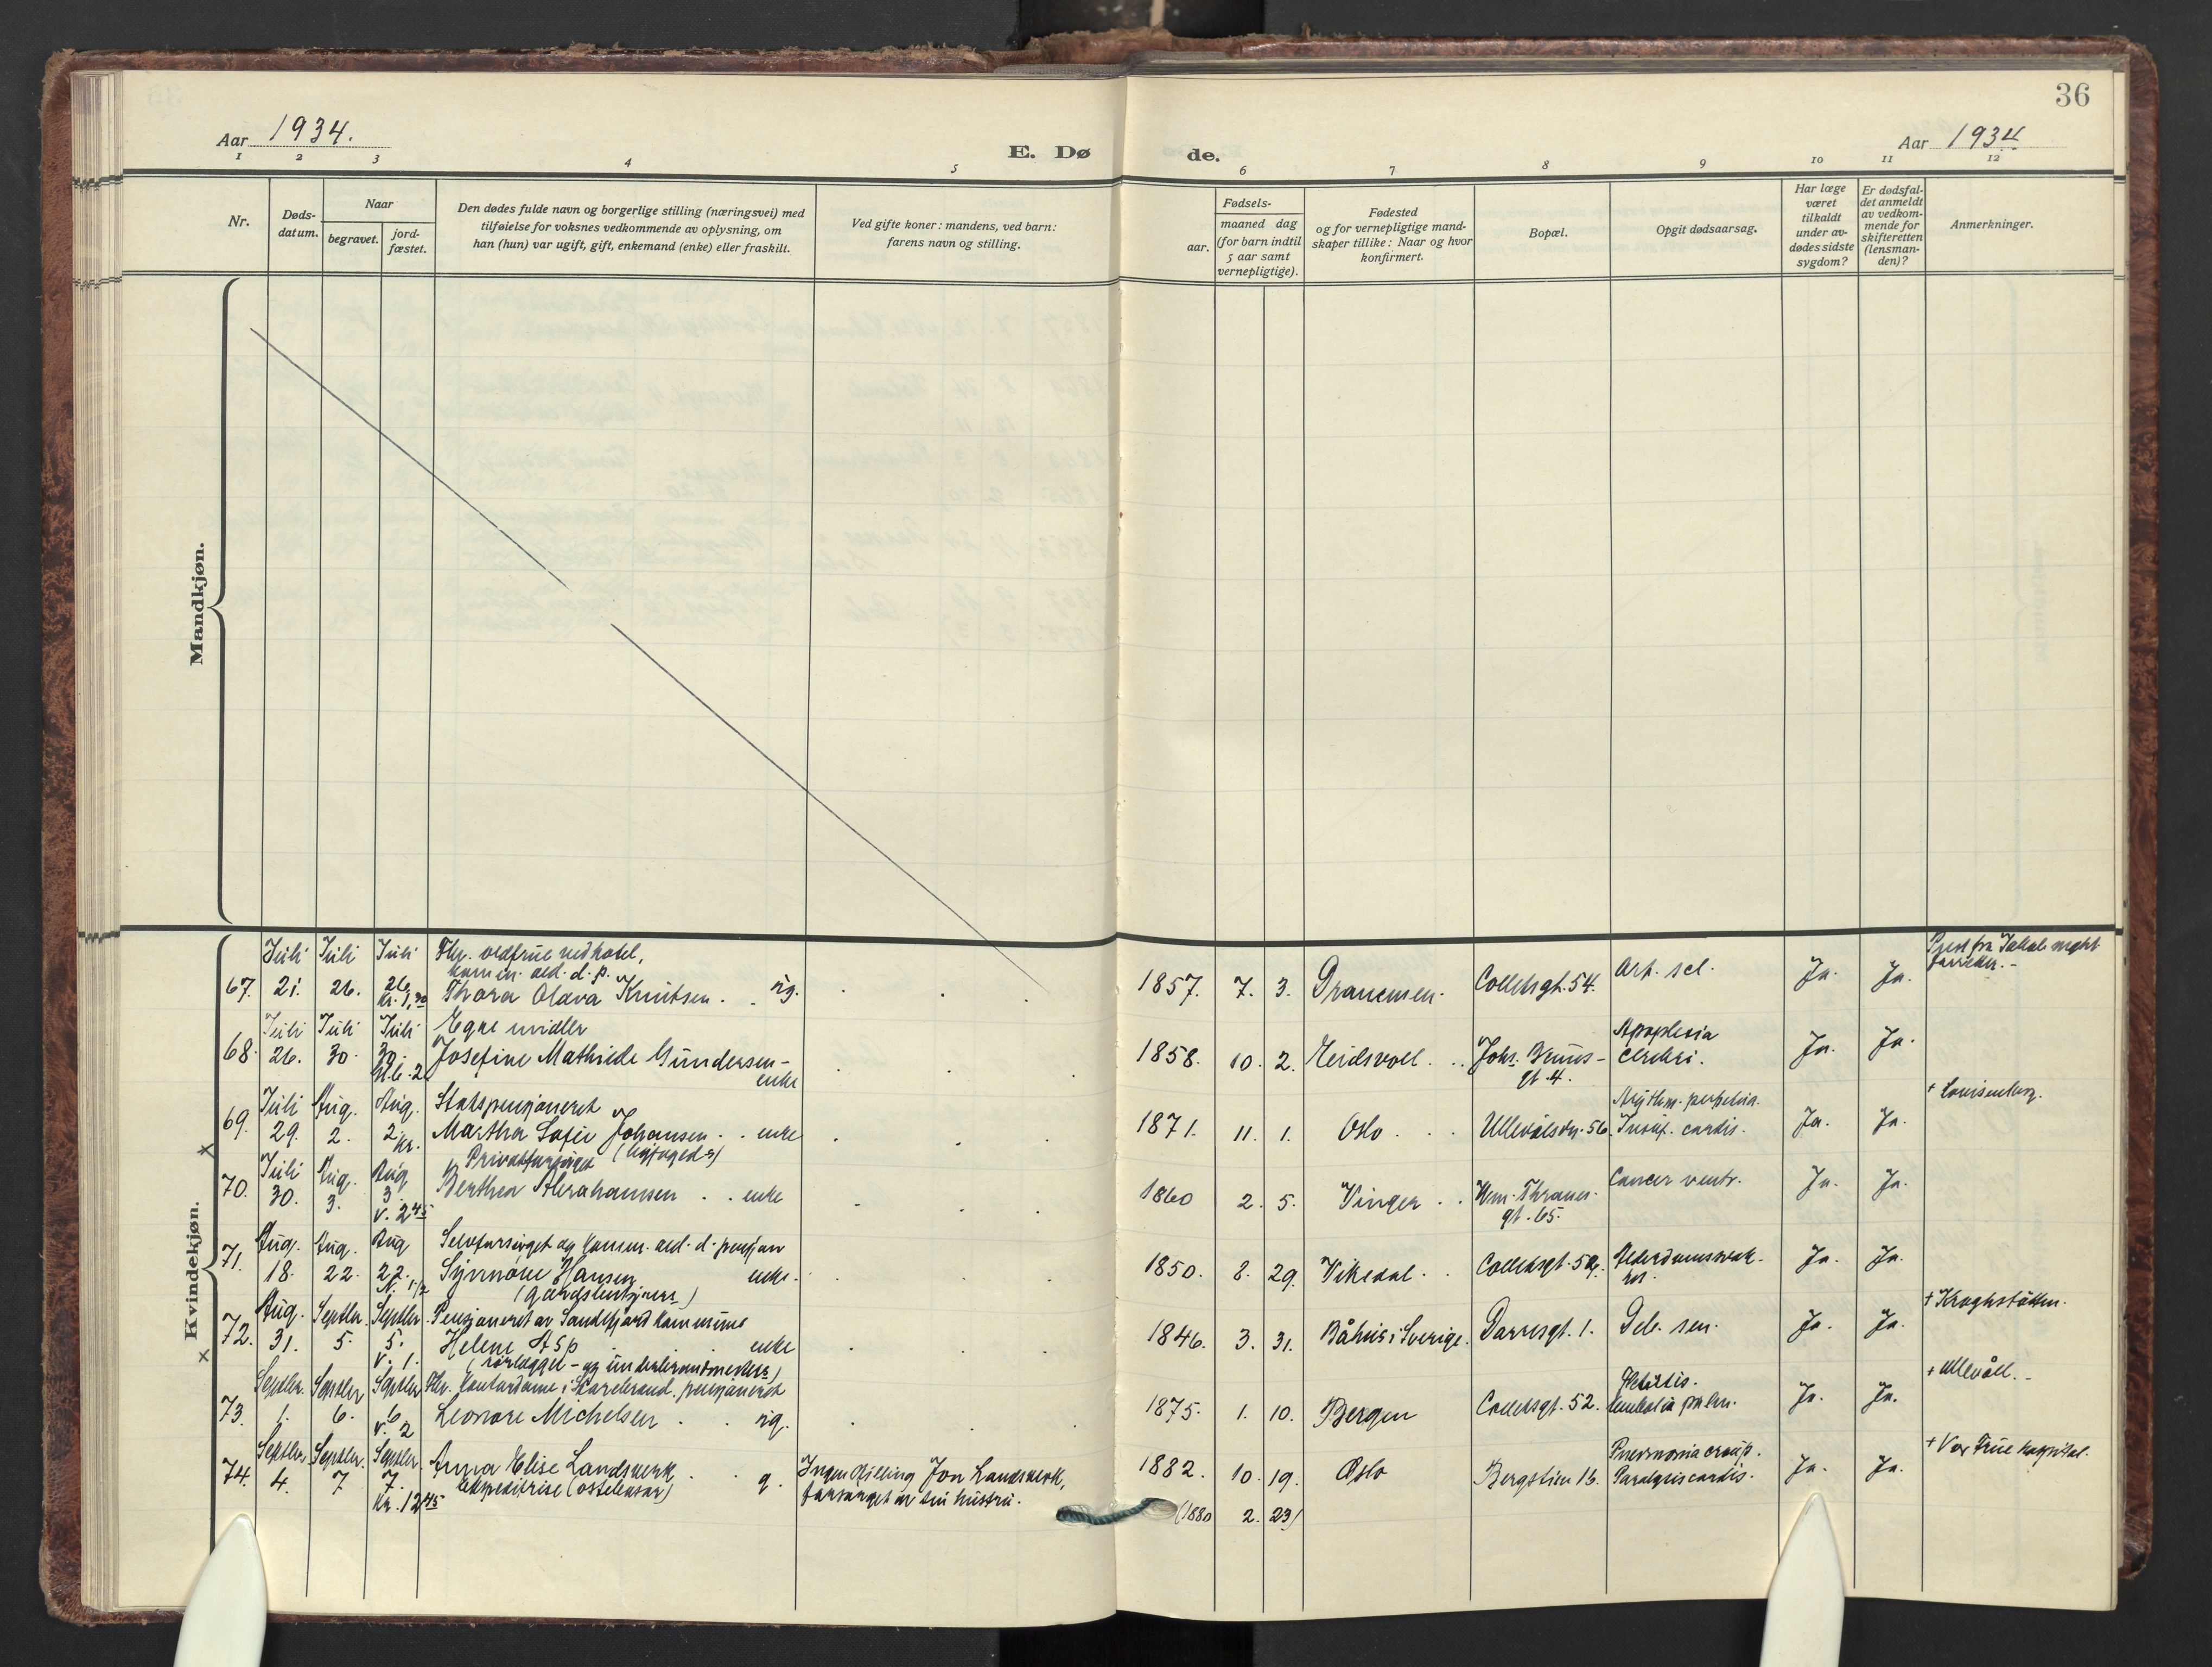 36
Aar 1934.
E. Dø de.
Aar 1934
1 2 3 4 5 6 7 8 9 10 11 12
Nr.
Døds-
datum.
Naar
begravet.
jord-
fæstet.
Den dødes fulde navn og borgerlige stilling (næringsvei) med
tilføielse for voksnes vedkommende av oplysning, om
han (hun) var ugift, gift, enkemand (enke) eller fraskilt.
Ved gifte koner: mandens, ved barn:
farens navn og stilling.
Fødsels-
aar.
maaned dag
(for barn indtil
5 aar samt
vernepligtige).
Fødested
og for vernepligtige mand-
skaper tillike: Naar og hvor
konfirmert.
Bopæl.
Opgit dødsaarsag.
Har læge
været
tilkaldt
under av-
dødes sidste
sygdom?
Er dødsfal-
det anmeldt
av vedkom-
mende for
skifteretten
(lensman-
den)?
Anmerkninger.
Mandkjøn.
Kvindekjøn.
Juli Juli Juli Fhv. oldfrue ved hotel,
komm. ald. d. p.
67. 21. 26. 26. Thora Olava Knutsen . . ug. 1857. 7. 3. Drammen. Colletsgt. 54. Art. scl. Ja. Ja.
Kr. 1,30
Juli Juli Juli Egne midler
68. 26. 30. 30. Josefine Mathilde Gundersen - enke 1858. 10. 2. Eidsvoll . . Johs. Bruns- gt. 4. Apoplexia cerebri. Ja. Ja.
Juli Aug. Aug. Statspensjoneret
69. 29. 2. 2. Martha Sofie Johansen . . enke 1871. 11. 1. Oslo . . . Ullevålsvn. 56. Insuf. cordis. Ja. Ja.
Kr.
Juli Aug. Aug Privatforsørget
70. 30. 3. 3. Berthea Abrahamsen . . enke 1860 2. 5. Vinger . . Wm. Thranes- gt. 65. Cancer ventr. Ja. Ja.
V. 2 45
Aug. Aug. Aug Selvforsørget og komm. ald. d. pensjon
71. 18. 22. 22. Hansen enke. 1850. 8. 29. Vikedal . . Colletsgt. 52. Ja. Ja.
N. 1/2
Aug. Septbr. Septbr. Pensjoneret av Sandefjord kommune
72. 31. 5. 5. Helene Asp enke 1846. 3. 31. Båhus i Sverige. Darresgt. 1. Deb. sen. Ja. Ja.
V. 1.
Septbr. Septbr Septbr Fhv. kontordame i Storebrand, pensjoneret
73. 1. 6. 6. Leonore Michelsen . . ug. 1875. 1. 10. Bergen Colletsgt. 52. Embolia pulm. Ja. Ja. + Ullevål.
V. 2
Septbr. Septbr. Septbr. Anna Elise Landsverk . . g. Ingen stilling Jon Landsverk, 1882. 10. 19. Oslo Bergstien 16. Pneumonia croup. + Vor Frue hospital.
74. 4. 7 7. ekspeditrise (ostebasar) forsørget av sin hustru. Paralysis cordis. Ja. Ja.
Kr. 12 45 (1880 2. 23)